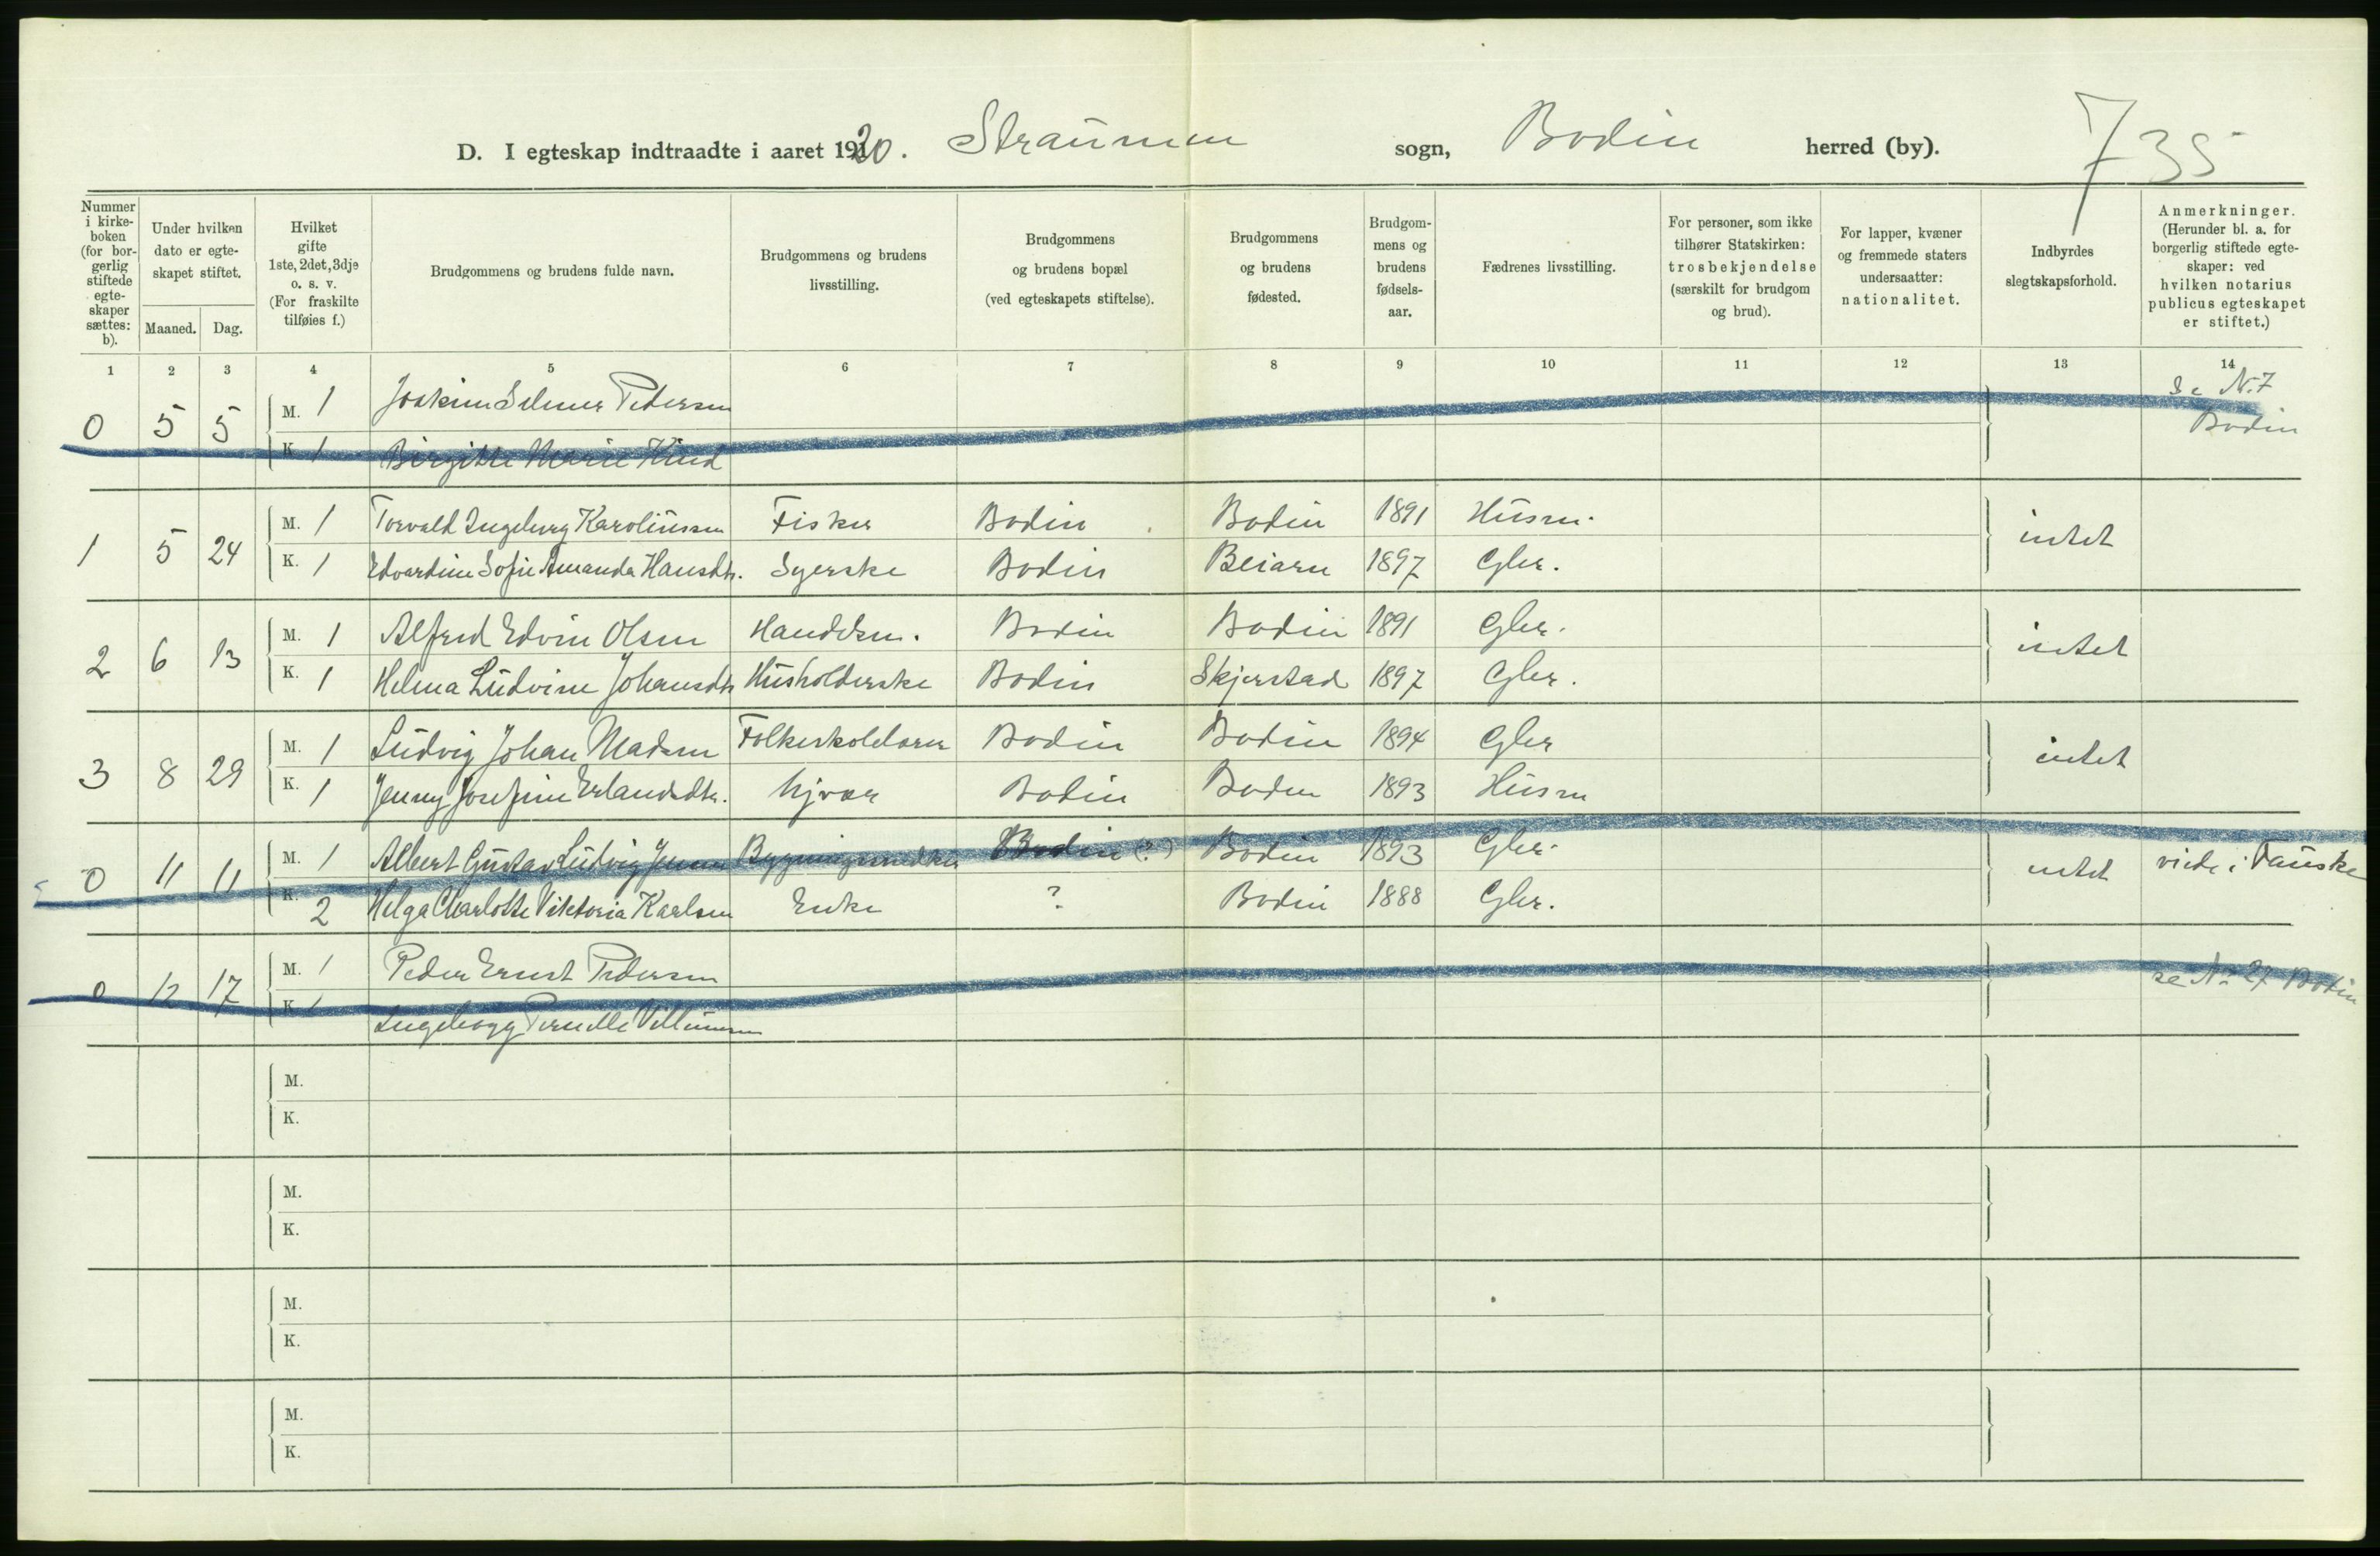 D. I egteskap indtraadte i aaret 1920. Straumen sogn, Bodin herred (by). 735
Nummer i kirkeboken (for borgerlig stiftede egteskaper sættes: b).
Under hvilken dato er egteskapet stiftet.
Maaned. Dag.
Hvilket gifte 1ste, 2det, 3dje o. s. v. (For fraskilte tilføies f.)
Brudgommens og brudens fulde navn.
Brudgommens og brudens livsstilling.
Brudgommens og brudens bopæl (ved egteskapets stiftelse).
Brudgommens og brudens fødested.
Brudgommens og brudens fødselsaar.
Fædrenes livsstilling.
For personer, som ikke tilhører Statskirken: trosbekjendelse (særskilt for brudgom og brud).
For lapper, kvæner og fremmede staters undersaatter: nationalitet.
Indbyrdes slegtskapsforhold.
Anmerkninger. (Herunder bl. a. for borgerlig stiftede egteskaper: ved hvilken notarius publicus egteskapet er stiftet.)
1 2 3 4 5 6 7 8 9 10 11 12 13 14
0 5 5 M. 1 Joakim Selmer Pedersen Se N. 7
K. 1 Birgitte Marie Kind Bodin
1 5 24 M. 1 Torvald Ingeburg Karolinssen Fisker Bodin Bodin 1891 Husm. intet
K. 1 Edvardine Sofie Amanda Hansdtr. Syerske Bodin Beiarn 1897 Gbr.
2 6 13 M. 1 Alfred Edvin Olsen Handelsm. Bodin Bodin 1891 Gbr. intet
K. 1 Helma Ludvine Johansdtr Husholderske Bodin Skjerstad 1897 Gbr.
3 8 29 M. 1 Ludvig Johan Madsen Folkeskolelærer Bodin Bodin 1894 Gbr intet
K. 1 Jenny Josefine Erlandsdtr. hjvær Bodin Bodin 1893 Husm
0 11 11 M. 1 Albert Gustav Ludvig Jensen Bygningssnedker Bodin (?) Bodin 1893 Gbr. intet viede i Fauske
K. 2 Helga Charlotte Viktoria Karlsen Enke ? Bodin 1888 Gbr.
0 12 17 M. 1 Peder Ernst Pedersen se No 27 Bodin
K. 1 Ingeborg Pernille Villumsen
M.
K.
M.
K.
M.
K.
M.
K.